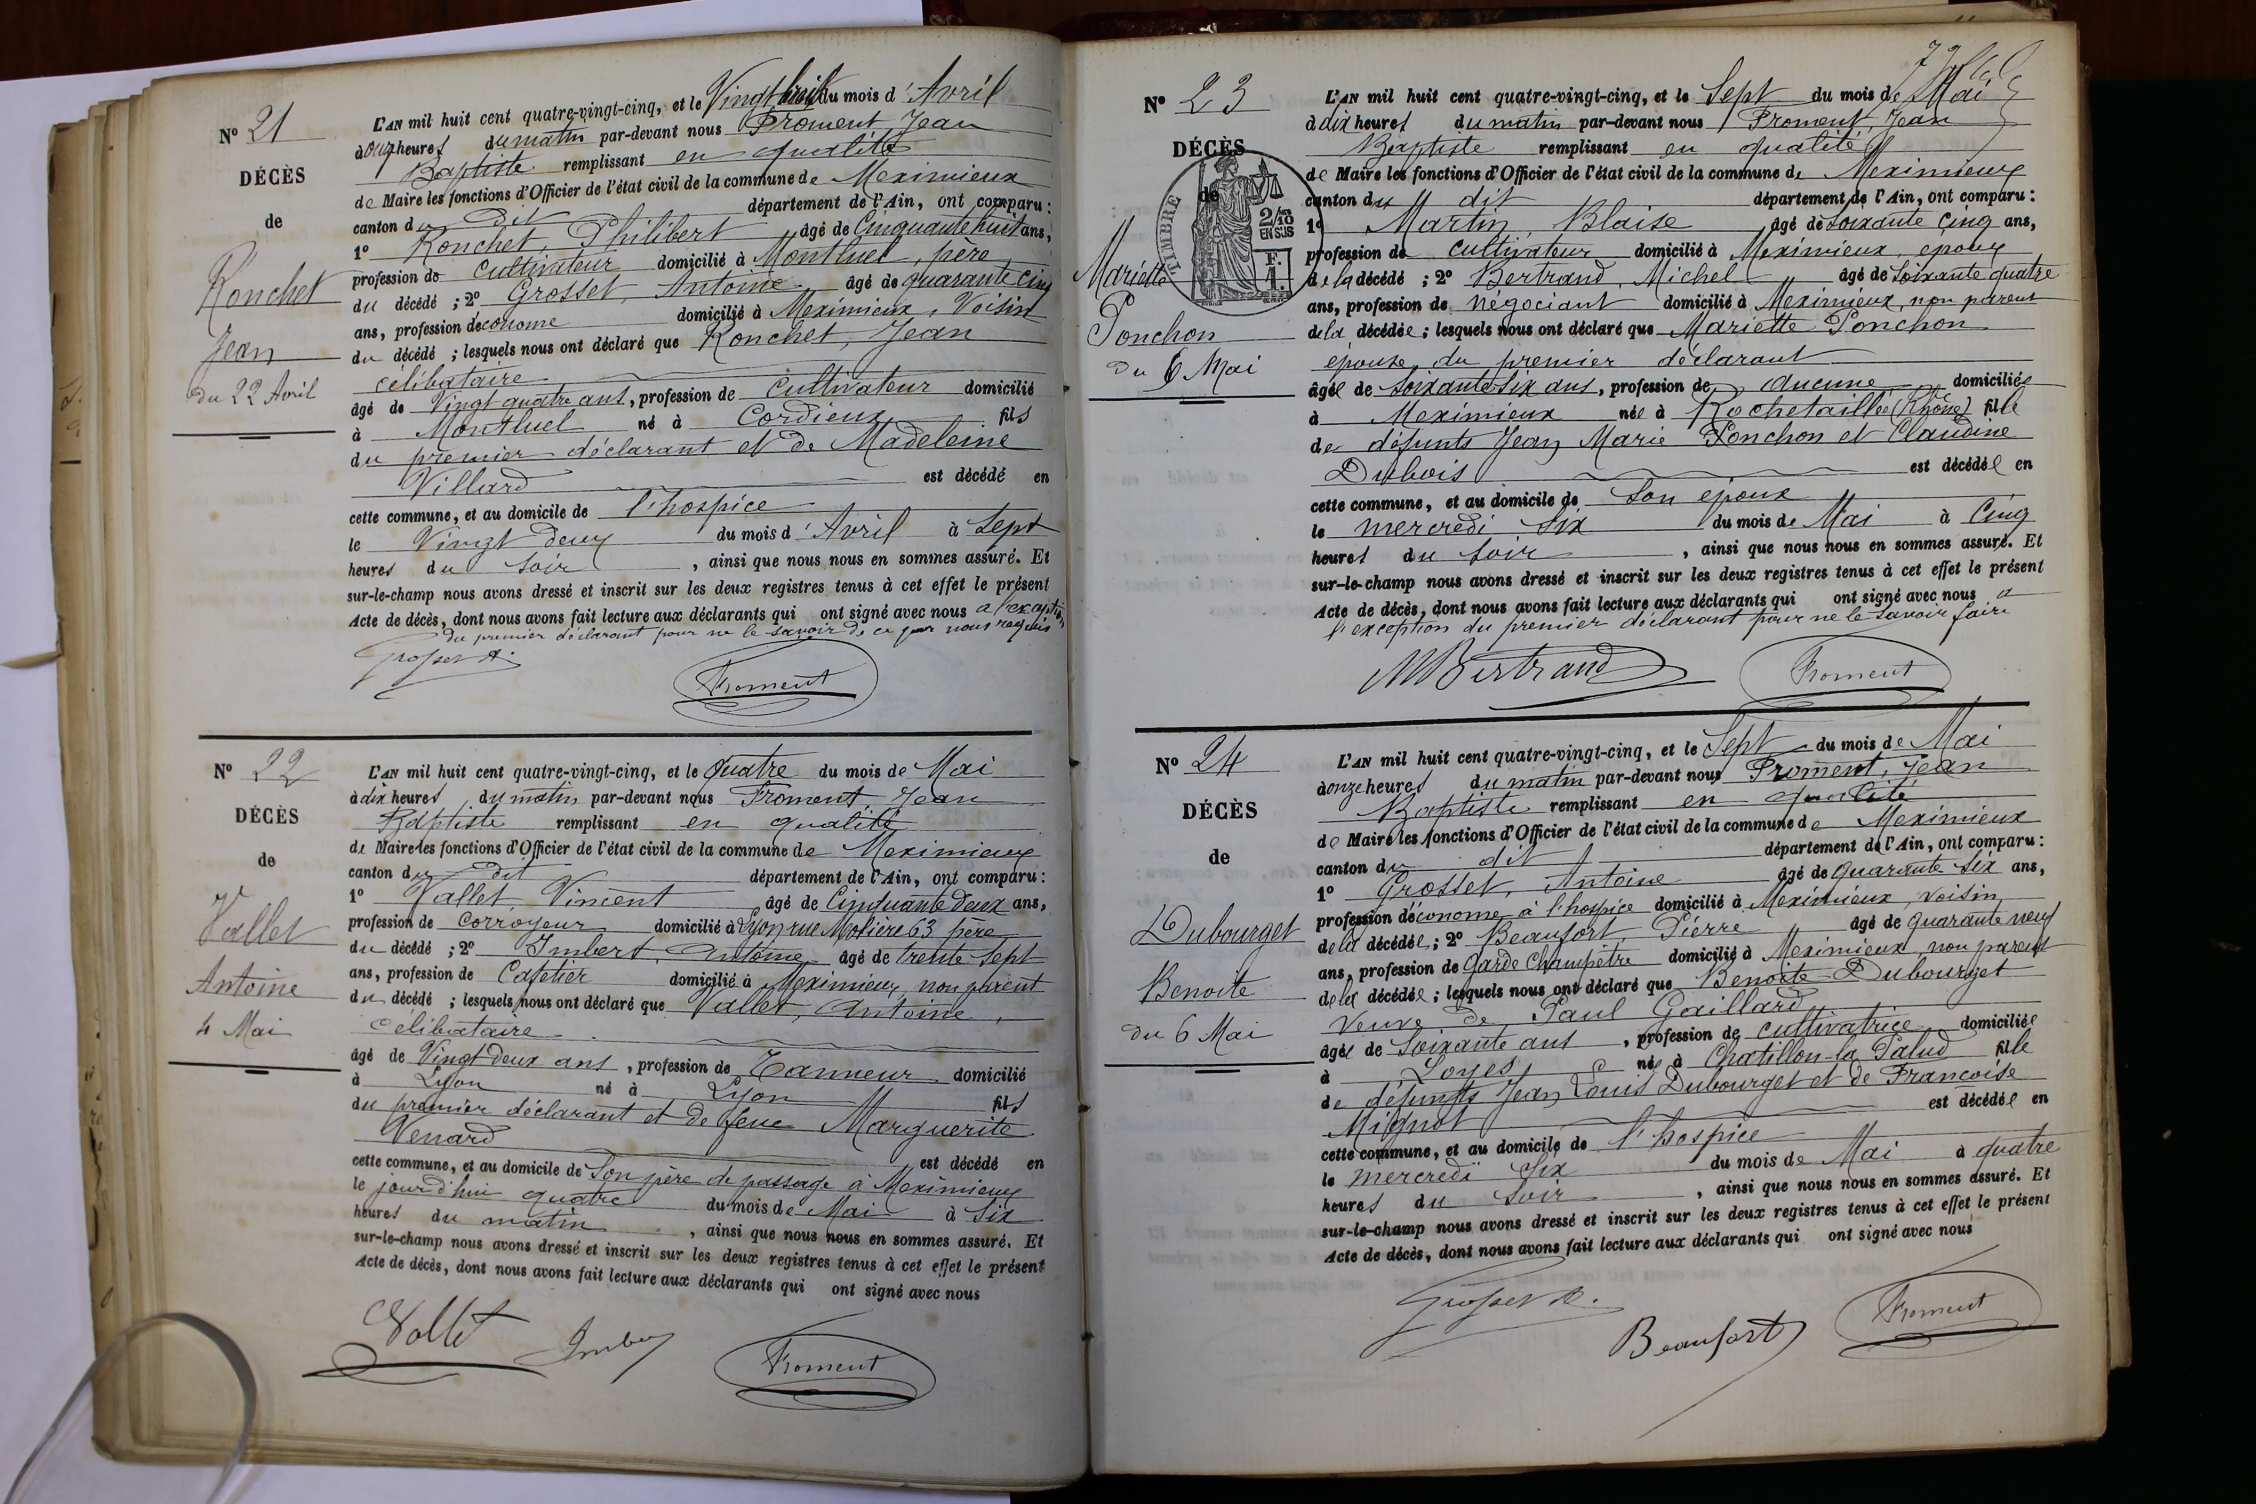 N° 21
DÉCÈS
de
Ronchet
Jean
du 22 Avril
L'AN mil huit cent quatre-vingt-cinq, et le Vingt trois du mois d'Avril
à onze heures du matin par-devant nous Froment Jean
Baptiste remplissant en qualité
de Maire les fonctions d'Officier de l'état civil de la commune de Meximieux
canton du dit département de l'Ain, ont comparu :
1° Ronchet, Philibert âgé de Cinquante huit ans,
profession de Cultivateur domicilié à Montluel, père
du décédé ; 2° Grosset, Antoine âgé de quarante cinq
ans, profession d'économe domicilié à Meximieux, Voisin
du décédé ; lesquels nous ont déclaré que Ronchet, Jean
célibataire
âgé de Vingt quatre ans, profession de Cultivateur domicilié
à Montluel né à Cordieux fils
du premier déclarant et de Madeleine
Villard est décédé en
cette commune, et au domicile de l'hospice
le Vingt deux du mois d'Avril à Sept
heures du soir, ainsi que nous nous en sommes assuré. Et
sur-le-champ nous avons dressé et inscrit sur les deux registres tenus à cet effet le présent
Acte de décès, dont nous avons fait lecture aux déclarants qui ont signé avec nous a l'exception
du premier déclarant pour ne le savoir de ce par nous requis
Grosset A.
Froment
N° 22
DÉCÈS
de
Vallet
Antoine
4 Mai
L'AN mil huit cent quatre-vingt-cinq, et le Quatre du mois de Mai
à dix heures du matin par-devant nous Froment, Jean
Baptiste remplissant en qualité
de Maire les fonctions d'Officier de l'état civil de la commune de Meximieux
canton du dit département de l'Ain, ont comparu :
1° Vallet Vincent âgé de Cinquante deux ans,
profession de Corroyeur domicilié à Lyon rue Molière 63 père
du décédé ; 2° Imbert, Antoine âgé de trente sept
ans, profession de Cafetier domicilié à Meximieux non parent
du décédé ; lesquels nous ont déclaré que Vallet, Antoine,
Célibataire
âgé de Vingt deux ans, profession de Tanneur domicilié
à Lyon né à Lyon fils
du premier déclarant et de feue Marguerite
Venard est décédé en
cette commune, et au domicile de Son père de passage à Meximieux
le jourd'hui quatre du mois de Mai à Six
heures du matin, ainsi que nous nous en sommes assuré. Et
sur-le-champ nous avons dressé et inscrit sur les deux registres tenus à cet effet le présent
Acte de décès, dont nous avons fait lecture aux déclarants qui ont signé avec nous
Vallet
Froment
N° 23
DÉCÈS
de
Mariette
Ponchon
du 6 Mai
TIMBRE
2/10
EN SUS
F.
1.
L'AN mil huit cent quatre-vingt-cinq, et le Sept du mois de Mai
à dix heures du matin par-devant nous Froment, Jean
Baptiste remplissant en qualité
de Maire les fonctions d'Officier de l'état civil de la commune de Meximieux
canton du dit département de l'Ain, ont comparu :
1° Martin, Blaise âgé de Soixante cinq ans,
profession de cultivateur domicilié à Meximieux, époux
de la décédé ; 2° Bertrand, Michel âgé de Soixante quatre
ans, profession de négociant domicilié à Meximieux, non parent
de la décédée ; lesquels nous ont déclaré que Mariette Ponchon
épouse du premier déclarant
âgée de Soixante six ans, profession de aucune domiciliée
à Meximieux née à Rochetaillée (Rhône) fille
de défunts Jean Marie Ponchon et Claudine
Dubois est décédée en
cette commune, et au domicile de Son époux
le mercredi six du mois de Mai à Cinq
heures du soir, ainsi que nous nous en sommes assuré. Et
sur-le-champ nous avons dressé et inscrit sur les deux registres tenus à cet effet le présent
Acte de décès, dont nous avons fait lecture aux déclarants qui ont signé avec nous a
l'exception du premier déclarant pour ne le savoir faire
MBertrand
Froment
N° 24
DÉCÈS
de
Dubourget
Benoite
du 6 Mai
L'AN mil huit cent quatre-vingt-cinq, et le Sept du mois de Mai
à onze heures du matin par-devant nous Froment, Jean
Baptiste remplissant en qualité
de Maire les fonctions d'Officier de l'état civil de la commune de Meximieux
canton du dit département de l'Ain, ont comparu :
1° Grosset, Antoine âgé de quarante six ans,
profession d'économe à l'hospice domicilié à Meximieux, voisin
de la décédée ; 2° Beaufort, Pierre âgé de quarante neuf
ans, profession de Garde Champêtre domicilié à Meximieux, non parent
de la décédée ; lesquels nous ont déclaré que Benoite Dubourget
Veuve de Paul Gaillard
âgée de Soixante ans, profession de cultivatrice domiciliée
à Loyes née à Chatillon-la Palud fille
de défunts Jean Louis Dubourget et de Francoise
Mignot est décédée en
cette commune, et au domicile de l'hospice
le mercredi Six du mois de Mai à quatre
heures du soir, ainsi que nous nous en sommes assuré. Et
sur-le-champ nous avons dressé et inscrit sur les deux registres tenus à cet effet le présent
Acte de décès, dont nous avons fait lecture aux déclarants qui ont signé avec nous
Grosset A.
Beaufort
Froment